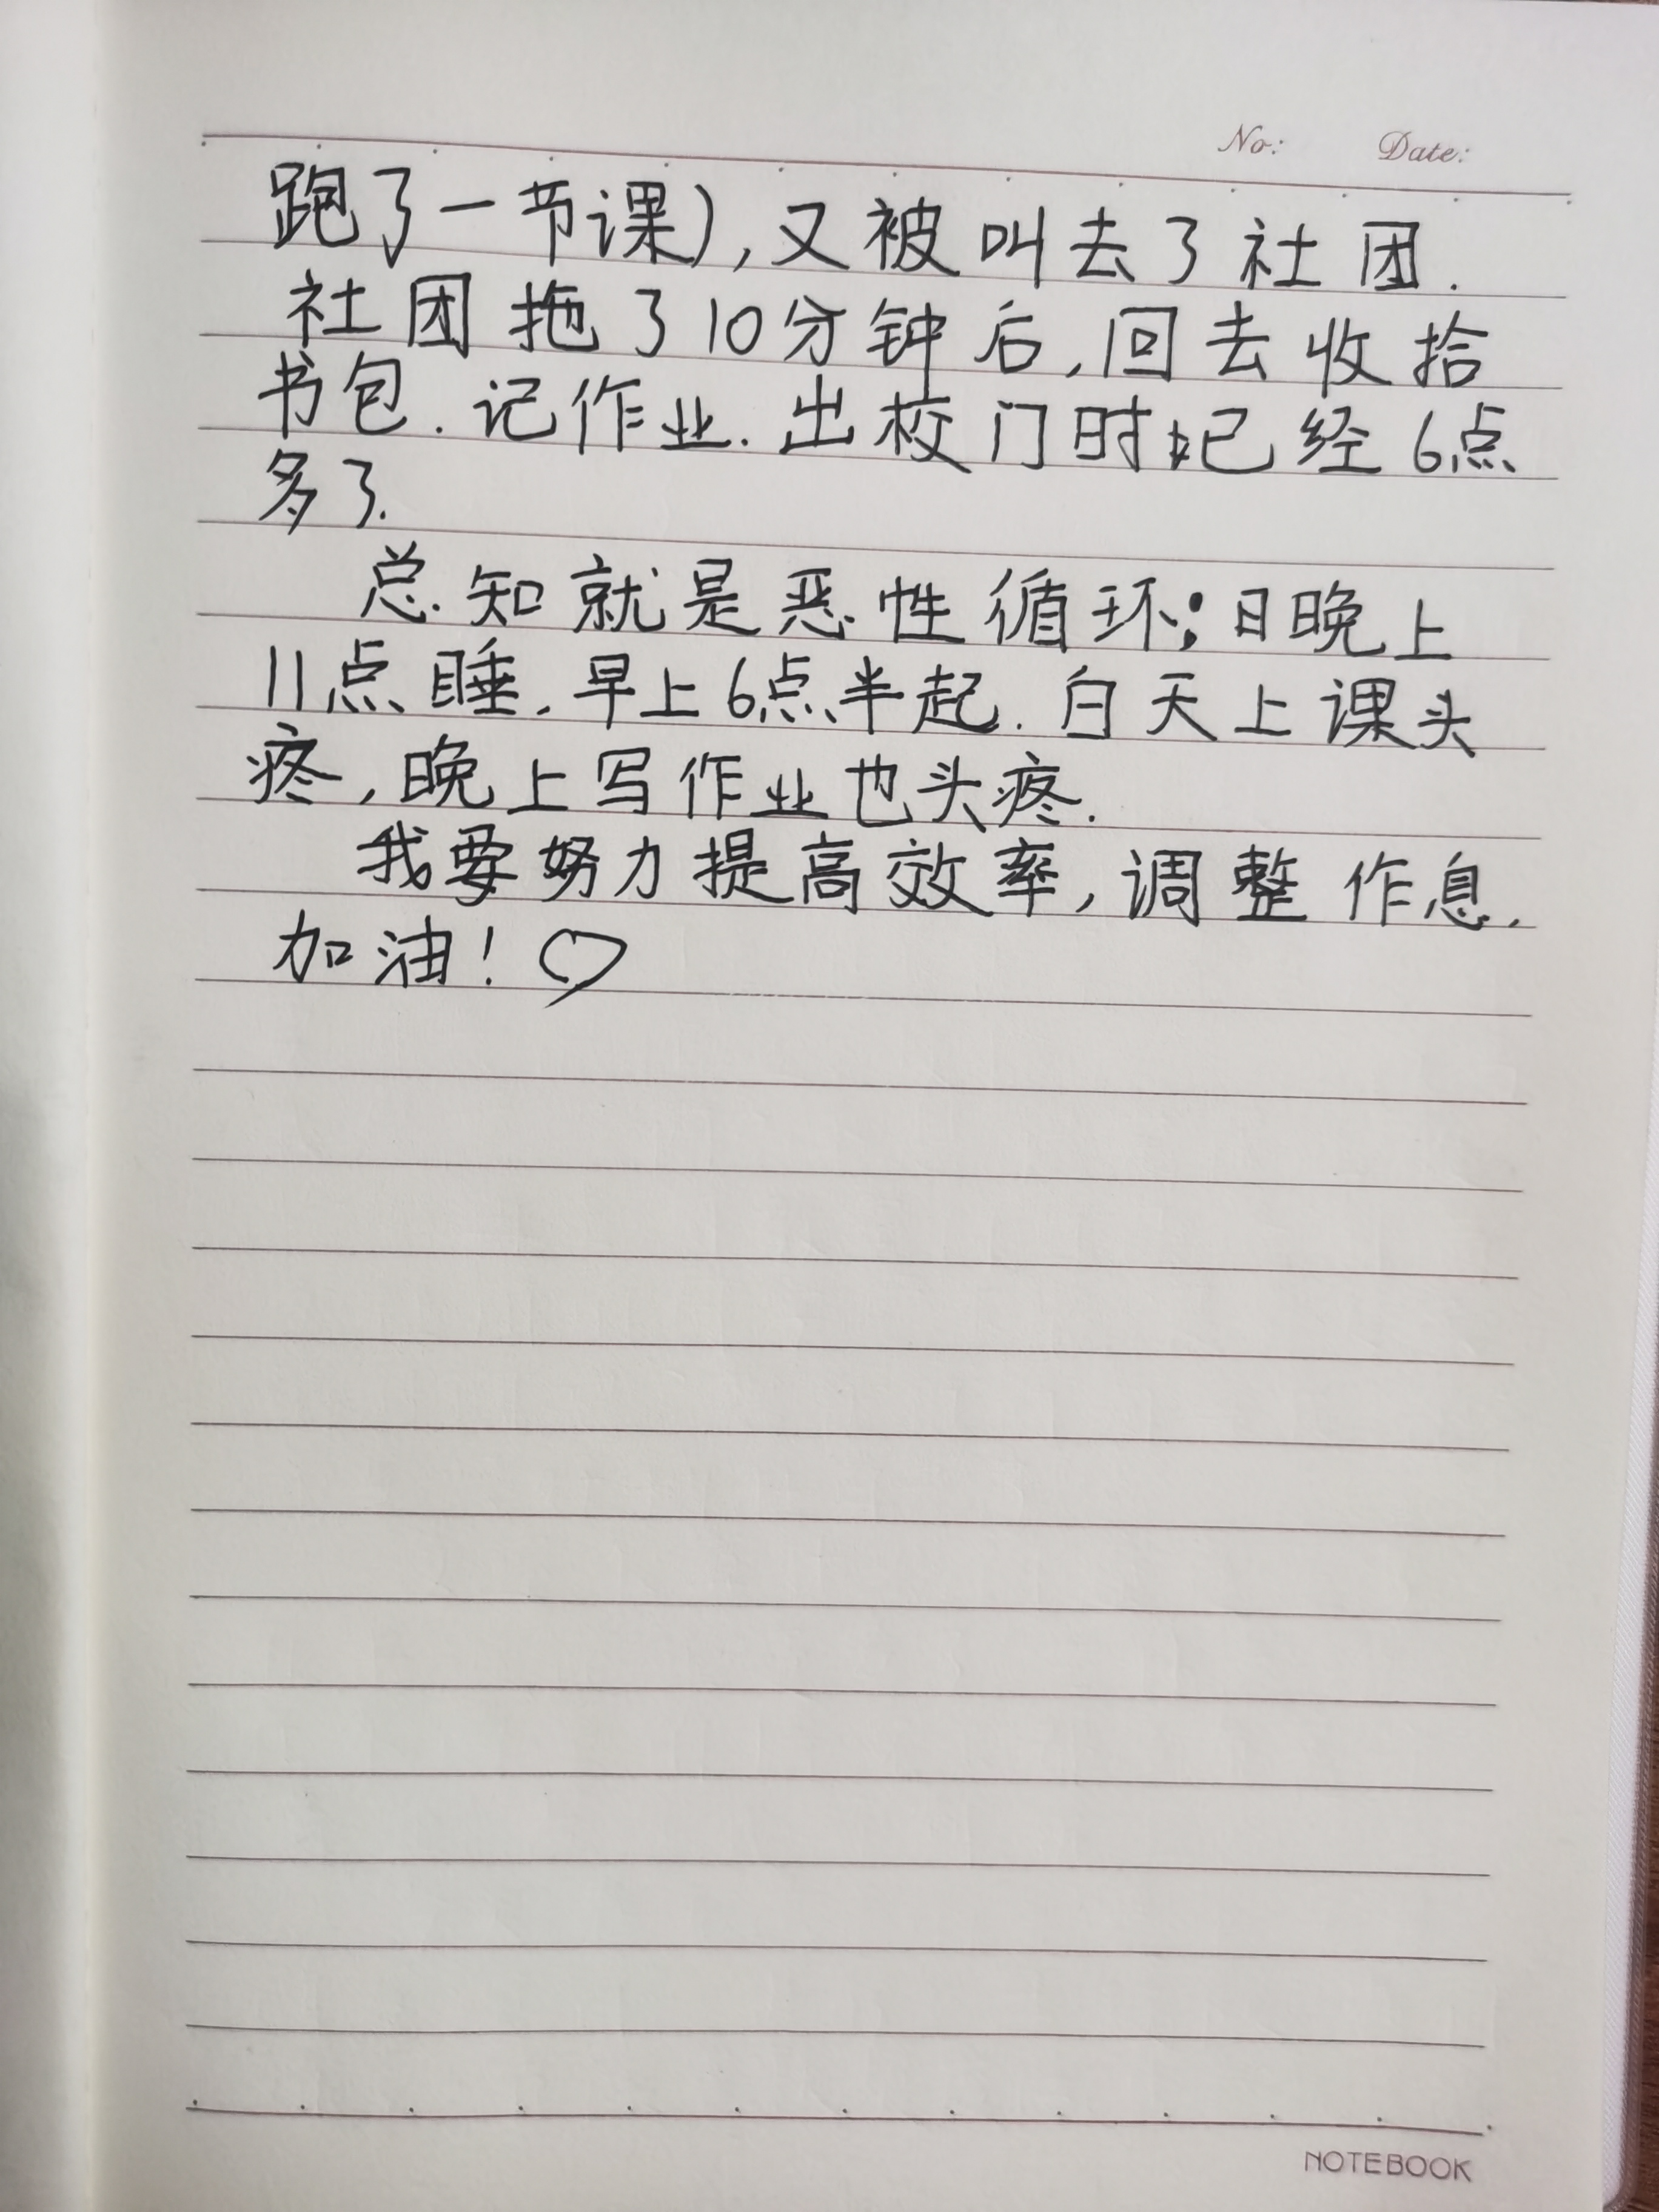 No: Date:
跑了一节课),又被叫去了社团.
社团拖了10分钟后,回去收拾
书包.记作业.出校门时已经6点
多了.
总知就是恶性循环;日晚上
11点睡.早上6点半起.白天上课头
疼,晚上写作业也头疼.
我要努力提高效率,调整作息.
加油!♡
NOTEBOOK